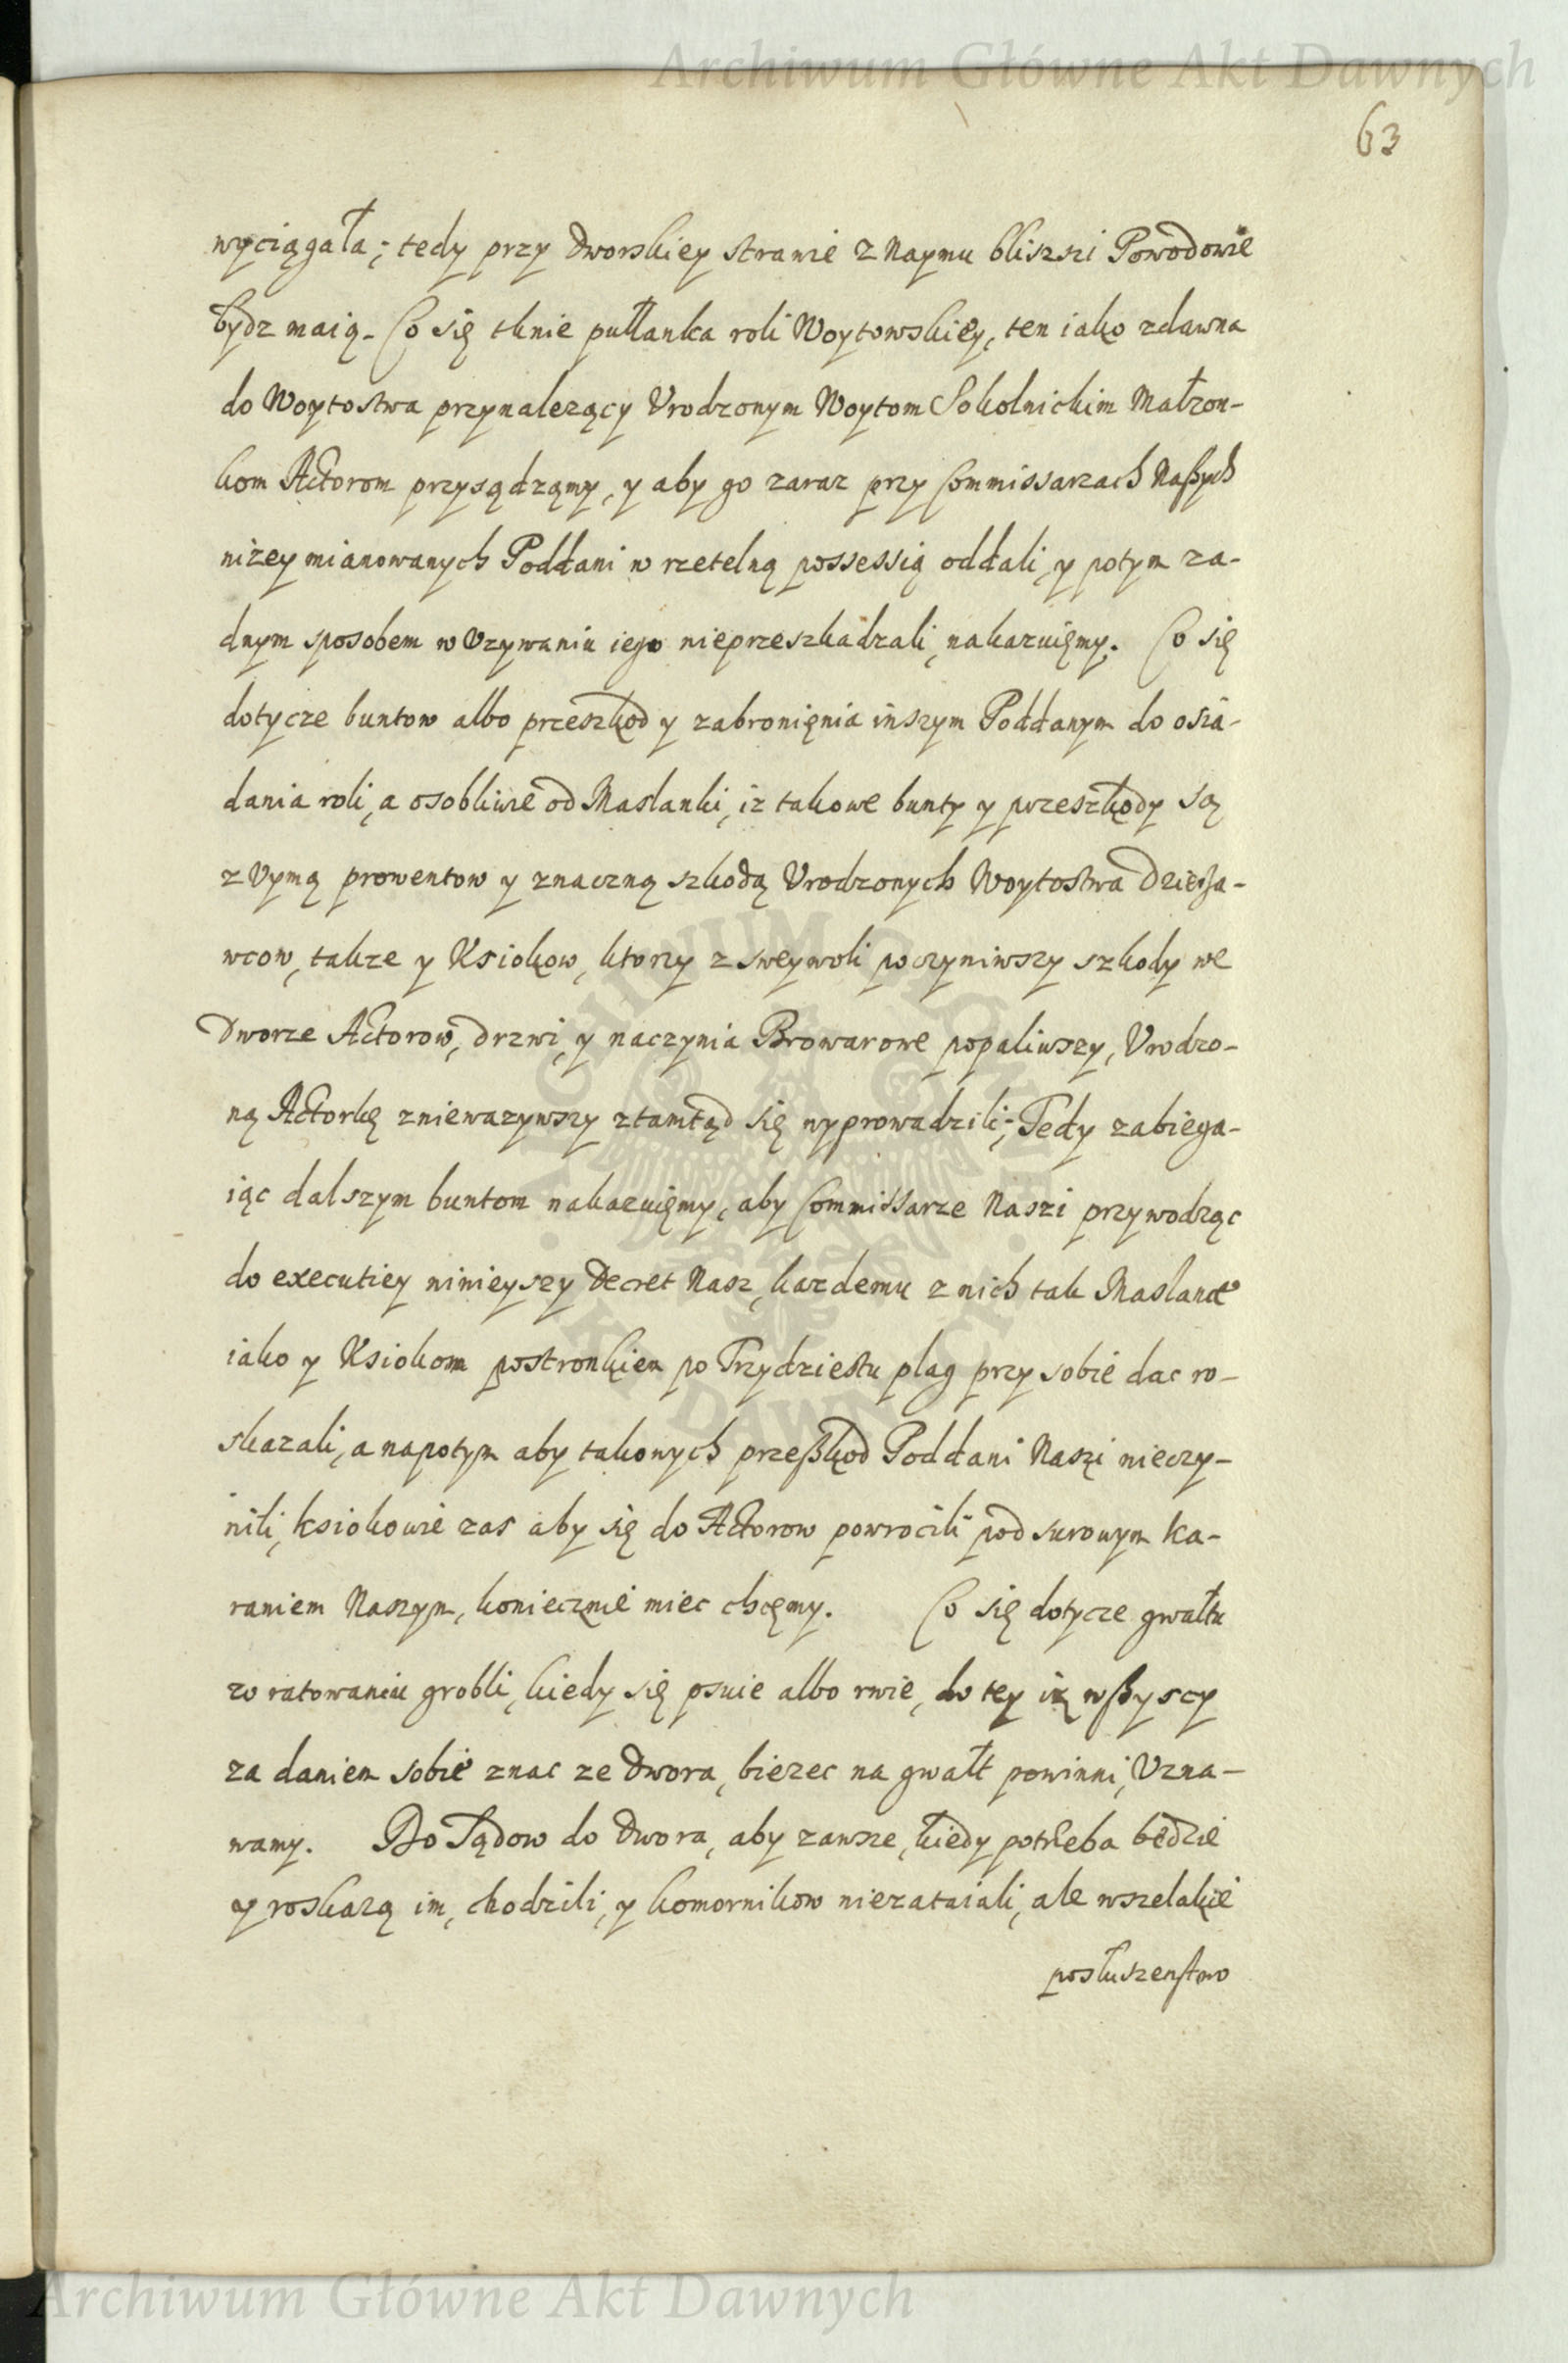 Archiwum Główne Akt Dawnych
63
wyciągała; tedy przy dworskiey stranie z Naymu bliszszi Powodowie
bydz maią. Co się tknie pułłanka roli Woytowskiey, ten iako zdawna
do Woytostwa przynalezący Vrodzonym Woytom Sokolnickim Małzon-
kom Actorom przysądzamy, y aby go zaraz przy Commissarzach Naßych
nizey mianowanych Poddani w rzetelną possessią oddali, y potym za-
dnym sposobem w Vzywaniu iego nieprzeszkadzali, nakazuięmy. Co się
dotycze buntow albo przeszkod y zabronięnia inszym Poddanym do osia-
dania roli, a osobliwie od Maslanki, iz takowe bunty y przeszkody są
z Vymą prowentow y znaczną szkodą Vrodzonych Woytostwa Dzierza-
wcow, takze y Ksiokow, ktorzy z sweywoli poczyniwszy szkody we
Dworze Actorow, drzwi, y naczynia Browarowe popaliwszy, Vrodzo-
ną Actorkę zniewazywszy ztamtąd się wyprowadzili; Tedy zabiega-
iąc dalszym buntom nakazuięmy, aby Commissarze Naszi przywodząc
do executiey ninieyszy Decret Nasz, kazdemu z nich tak Maslance
iako y Ksiokom postronkiem po Trzydziestu plag przy sobie dac ro-
skazali, a napotym aby takowych przeßkod Poddani Naszi nieczy-
nili, ksiokowie zas aby się do Actorow powrocili pod surowym ka-
raniem Naszym, koniecznie miec chcęmy. Co się dotycze gwałtu
w ratowaniu grobli, kiedy się psuie albo rwie, do tey iz wßyscy
za daniem sobie znac ze Dwora, biezec na gwałt powinni, Vzna-
wamy. Do Sądow do Dwora, aby zawsze, kiedy potrzeba będzie
y roskazą im, chodzili, y komornikow niezataiali, ale wszelakie
posłuszenstwo
Archiwum Główne Akt Dawnych